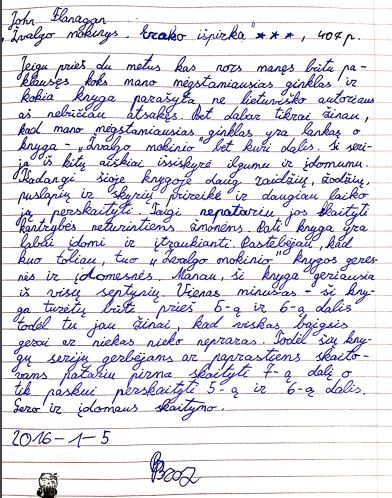 John Flanagan
„Žvalgo mokinys. Erako išpirka" ★★★, 407 p.
Jeigu prieš du metus kas nors manęs būtų pa-
klausęs koks mano mėgstamiausias ginklas ir
kokia knyga parašyta ne lietuviško autoriaus
aš nebūčiau atsakęs. Bet dabar tikrai žinau,
kad mano mėgstamiausias ginklas yra lankas o
knyga - „Žvalgo mokinio" bet kuri dalis. Ši seri-
ja iš kitų aiškiai išsiskyrė ilgumu ir įdomumu.
Kadangi šioje knygoje daug raidžių, žodžių,
puslapių ir skyrių prireikė ir daugiau laiko
ją perskaityti. Taigi nepatariu jos skaityti
kantrybės neturintiems žmonėms. Pati knyga yra
labai įdomi ir įtraukianti. Pastebėjau, kad
kuo toliau, tuo „Žvalgo mokinio" knygos geres-
nės ir įdomesnės. Manau, ši knyga geriausia
iš visų septynių. Vienas minusas - ši kny-
ga turėtų būti prieš 5-ą ir 6-ą dalis
todėl tu jau žinai, kad viskas baigsis
gerai ir niekas nieko nepraras. Todėl šių kny-
gų serijų gerbėjams ar paprastiems skaito-
vams patariu pirma skaityti 7-ą dalį o
tik paskui perskaityti 5-ą ir 6-ą dalis.
Gero ir įdomaus skaitymo.
2016-1-5